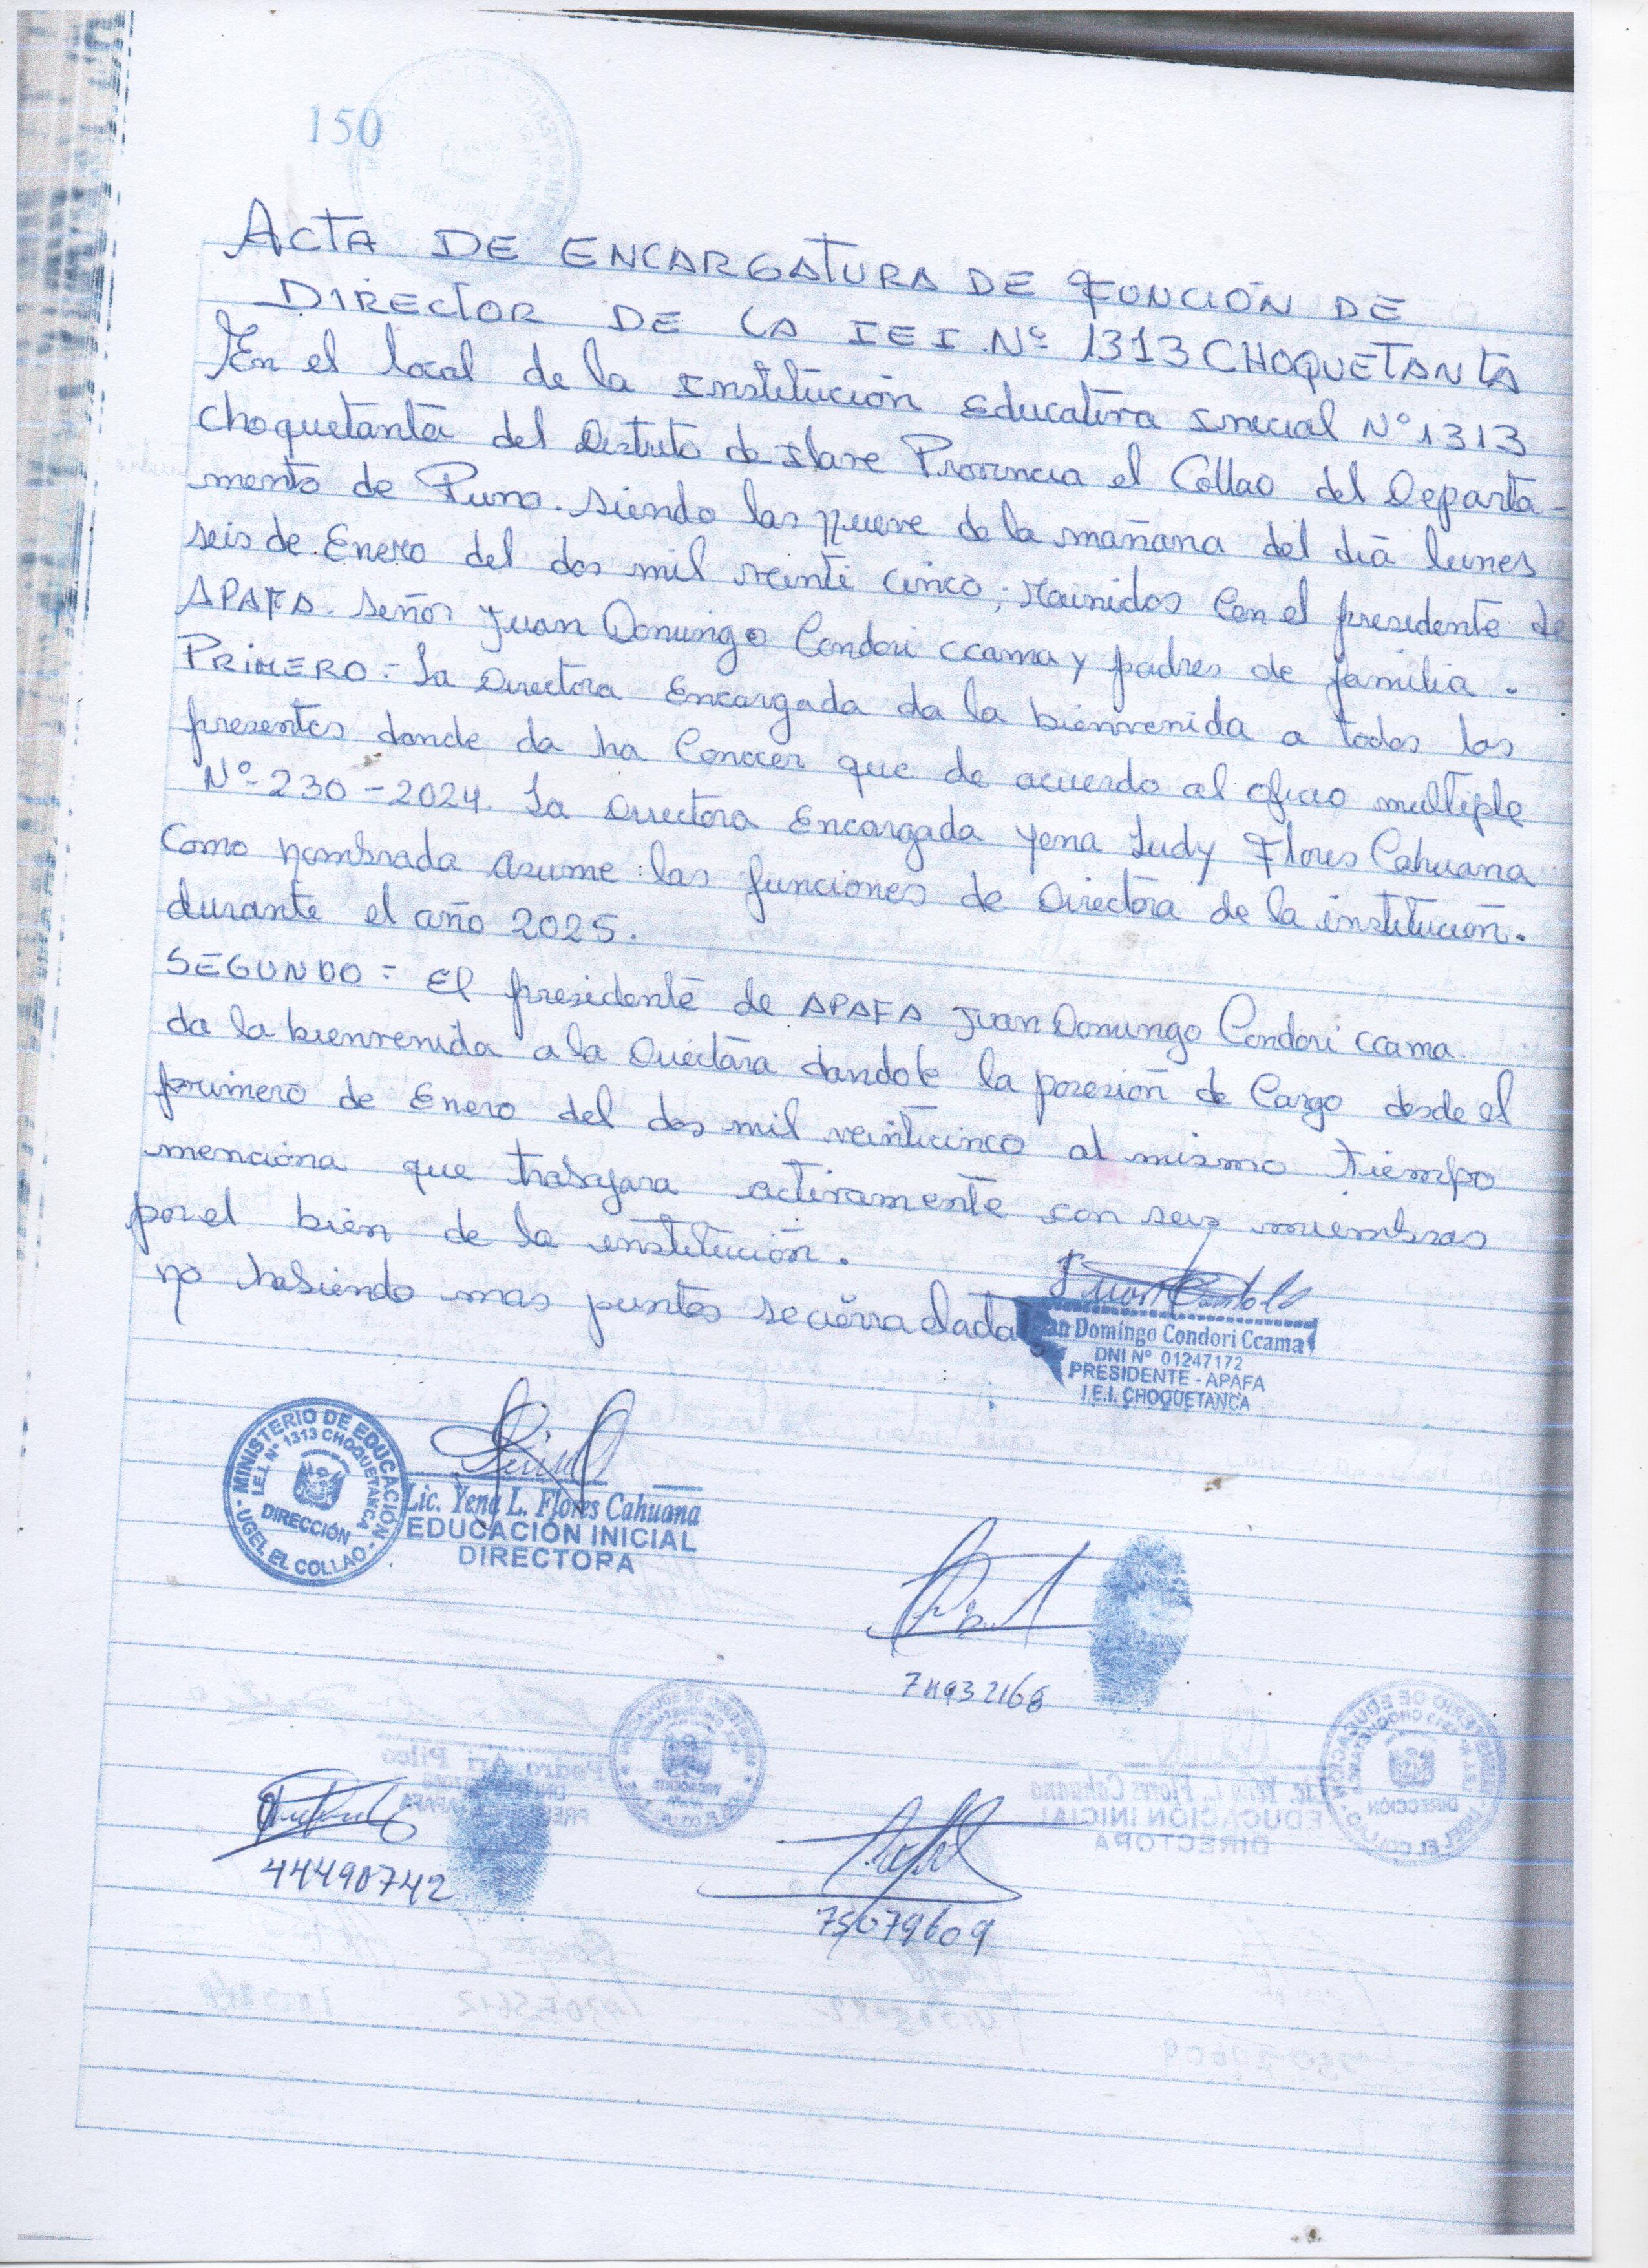 150
ACTA DE ENCARGATURA DE FUNCIÓN DE
DIRECTOR DE LA IEI Nº 1313 CHOQUETANTA
En el local de la Institución Educativa Inicial Nº 1313
Choquetanta del Distrito de Ilave Provincia el Collao del Departa-
mento de Puno. siendo las nueve de la mañana del dia lunes
seis de Enero del dos mil veinti cinco; reunidos con el presidente de
APAFA. Señor Juan Domingo Condori ccama y padres de familia.
PRIMERO.- La Directora Encargada da la bienvenida a todos los
presentes donde da ha conocer que de acuerdo al oficio multiple
Nº-230-2024. La Directora Encargada Yena Ludy Flores Cahuana
Como nombrada asume las funciones de Directora de la institución.
durante el año 2025.
SEGUNDO = El presidente de APAFA Juan Domingo Condori ccama.
da la bienvenida a la Directora dandole la posesión de Cargo desde el
primero de Enero del dos mil veinticinco al mismo tiempo
menciona que trabajara activamente con seis miembros
por el bien de la institución.
no habiendo mas puntos se cierra dada
an Domingo Condori Ccama
DNI Nº 01247172
PRESIDENTE - APAFA
I.E.I. CHOQUETANCA
MINISTERIO DE EDUCACIÓN
I.E.I. Nº 1313 CHOQUETANCA
DIRECCIÓN
- UGEL EL COLLAO -
Lic. Yena L. Flores Cahuana
EDUCACIÓN INICIAL
DIRECTORA
44490742
75079609